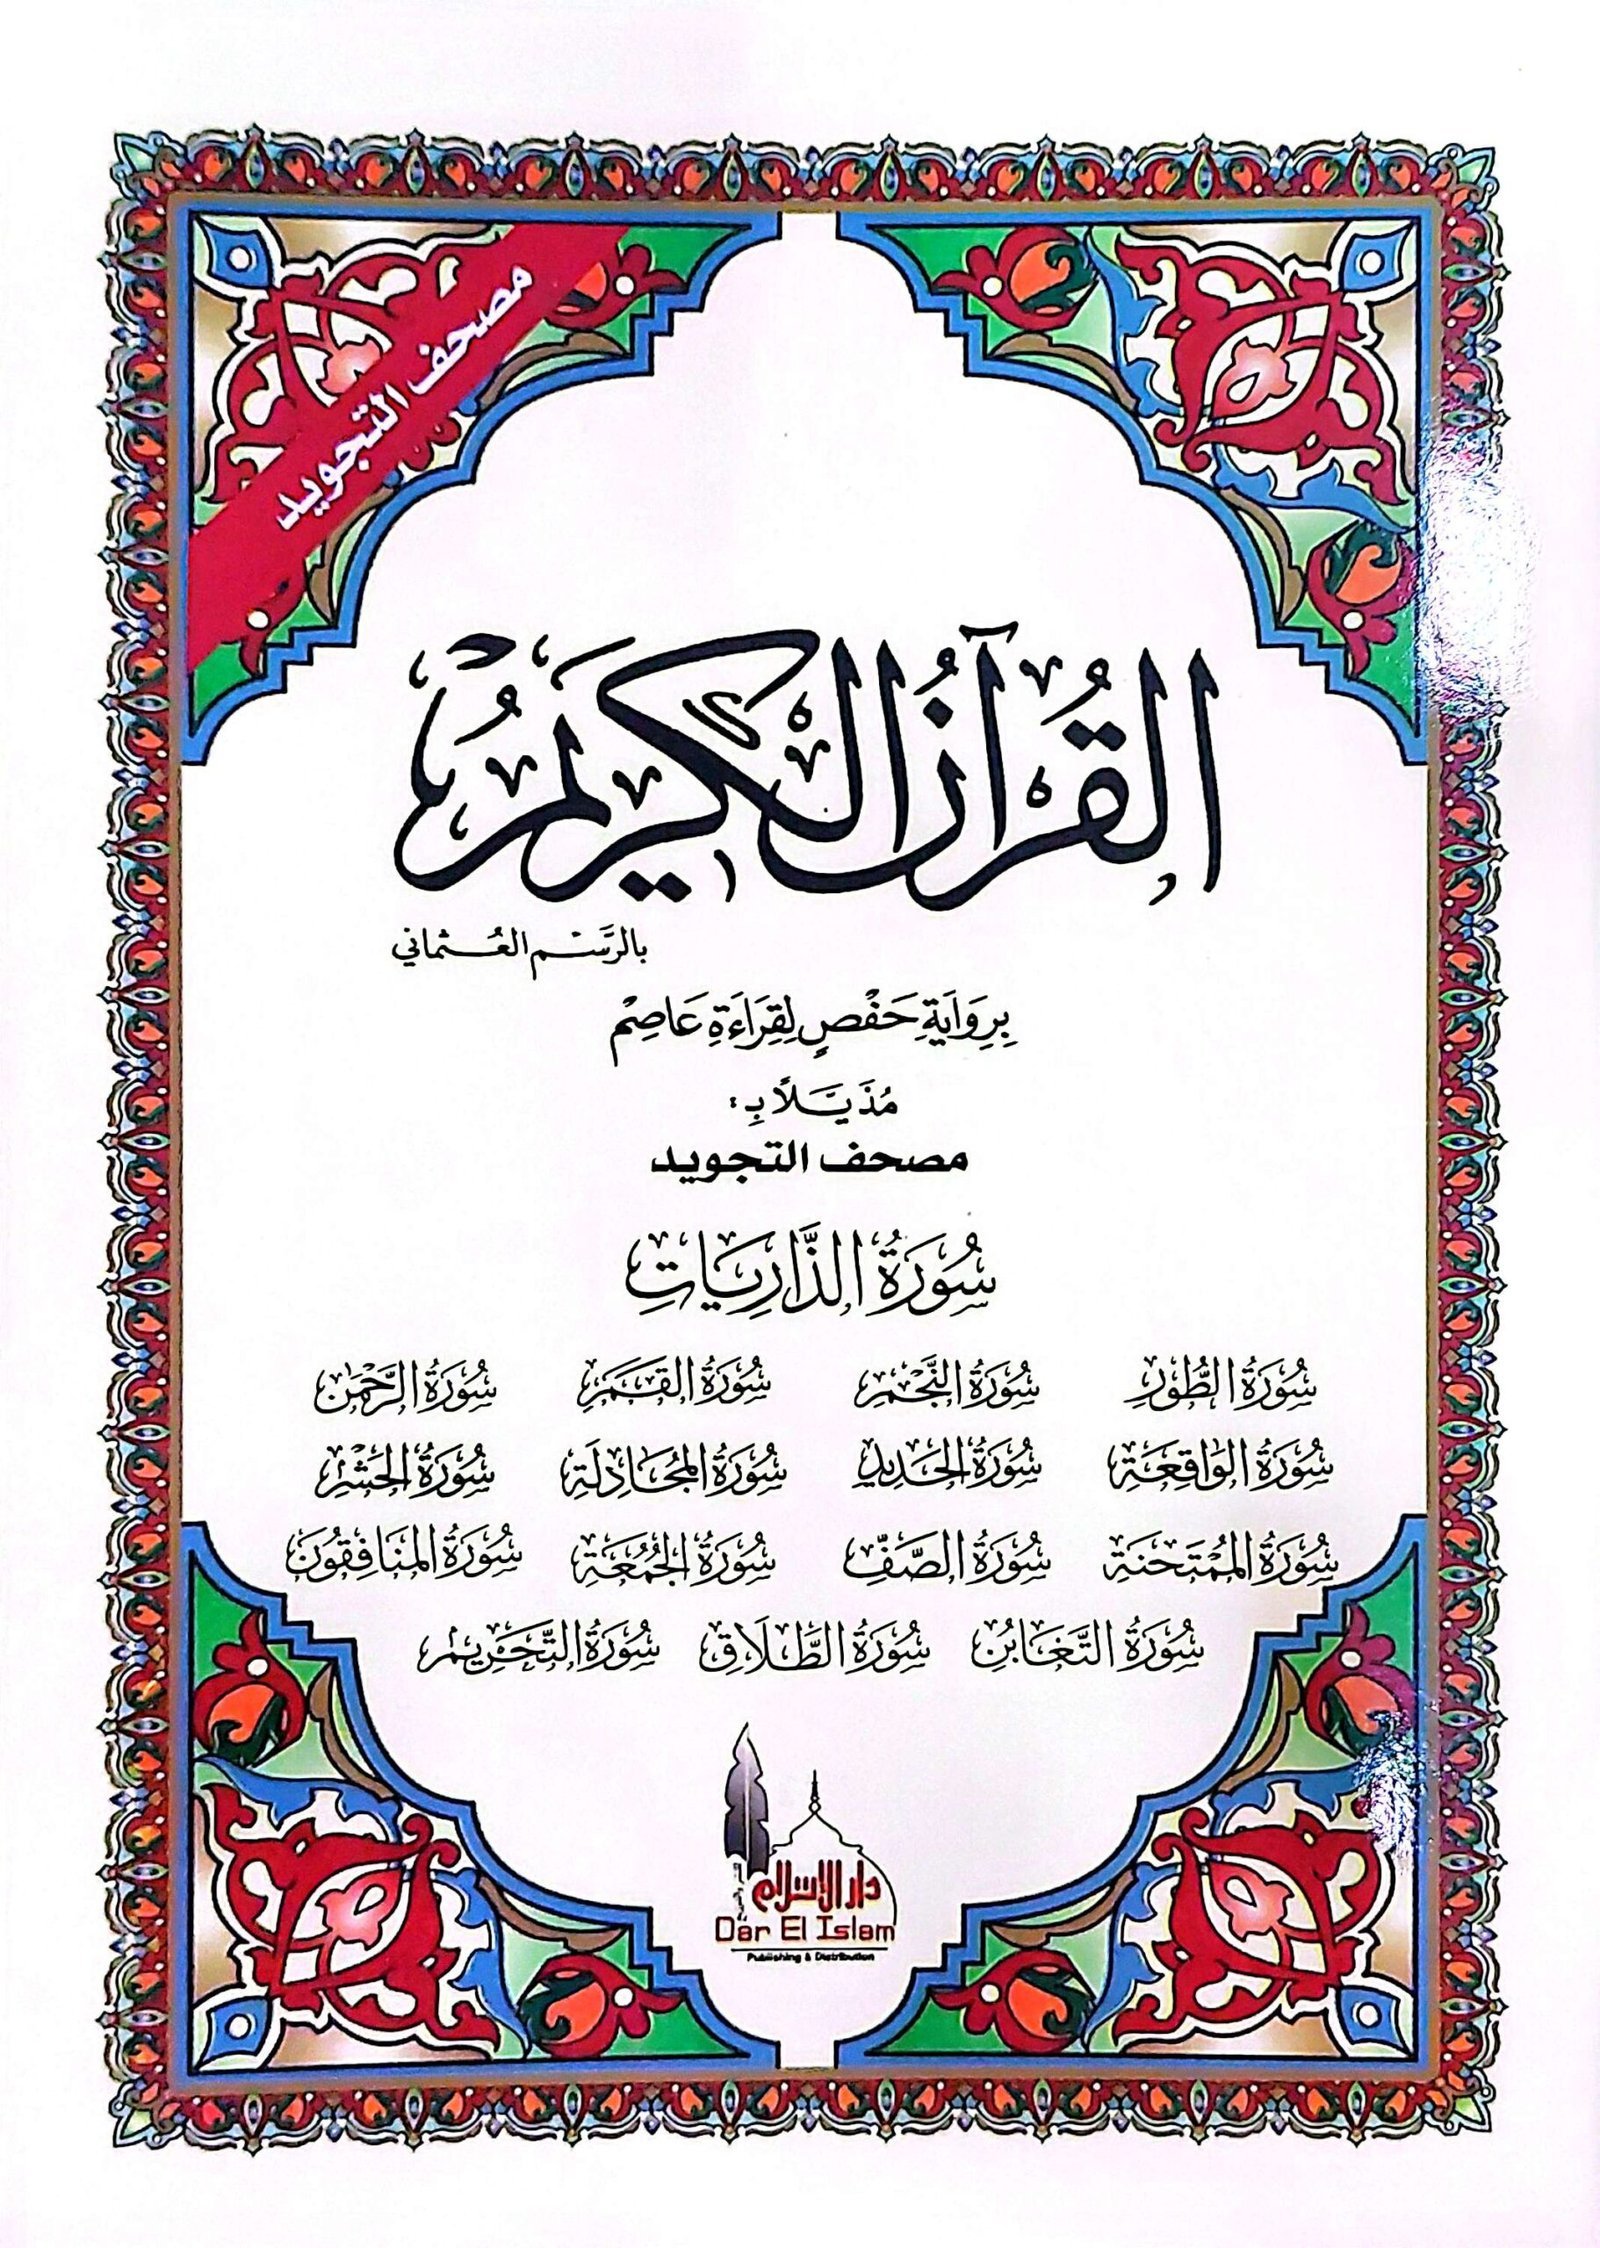 مصحف التجويد
القُرآنُ الكَرِيمُ
بالرَّسْم العُثماني
بِرِوَايَةِ حَفْصٍ لِقِرَاءَةِ عَاصِمْ
مُذَيَّلاً بِ :
مصحف التجويد
سُورَةُ الذَّارِيَاتِ
سُورَةُ الطُّورِ سُورَةُ النَّجْمِ سُورَةُ القَمَرِ سُورَةُ الرَّحْمَن
سُورَةُ الوَاقِعَةِ سُورَةُ الحَدِيدِ سُورَةُ المُجَادِلَةِ سُورَةُ الحَشْرِ
سُورَةُ المُمْتَحنَةِ سُورَةُ الصَّفِّ سُورَةُ الجُمُعَةِ سُورَةُ المُنَافِقُونَ
سُورَةُ التَّغَابُنِ سُورَةُ الطَّلَاقِ سُورَةُ التَّحْرِيمِ
دار الإسلام
Dar El Islam
Publishing & Distribution